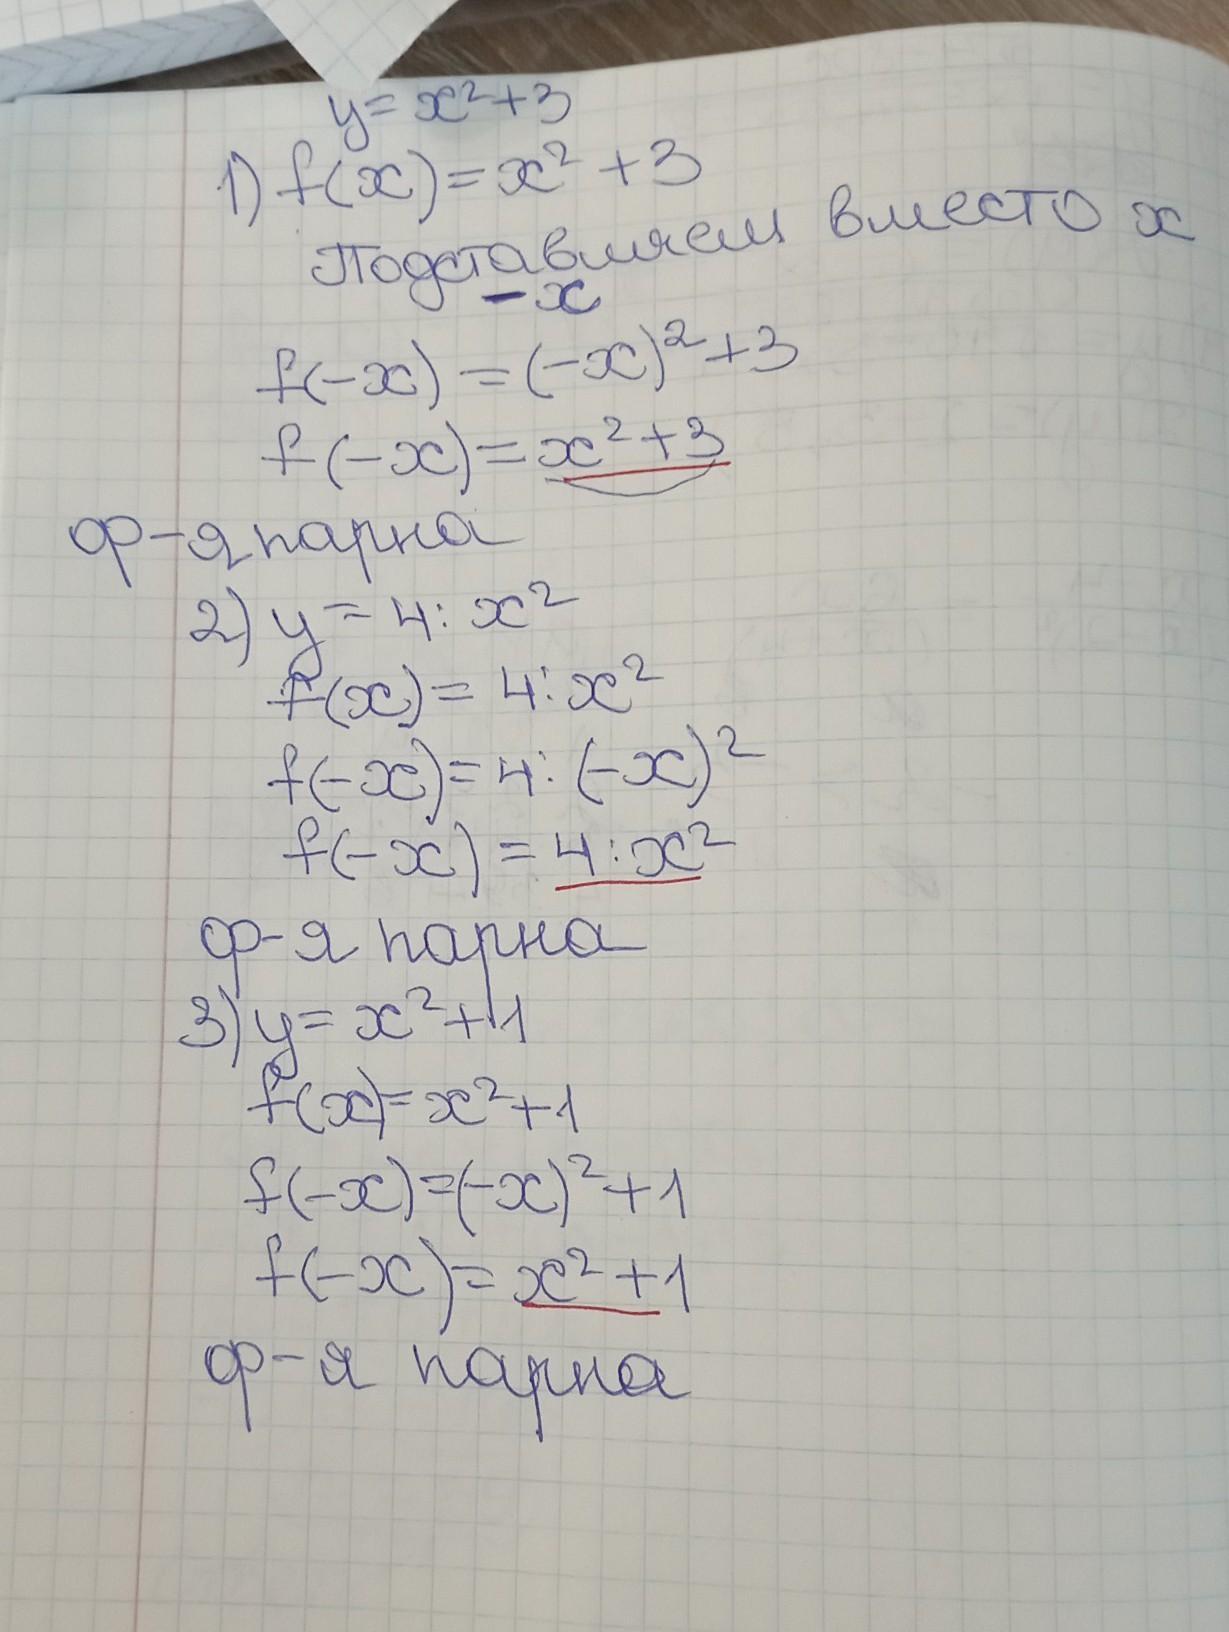 y = x² + 3
1) f(x) = x² + 3
Подставляем вместо x
- x
f(-x) = (-x)² + 3
f(-x) = x² + 3
ф-я парна
2) y = 4 : x²
f(x) = 4 : x²
f(-x) = 4 : (-x)²
f(-x) = 4 : x²
ф-я парна
3) y = x² + 1
f(x) = x² + 1
f(-x) = (-x)² + 1
f(-x) = x² + 1
ф-я парна